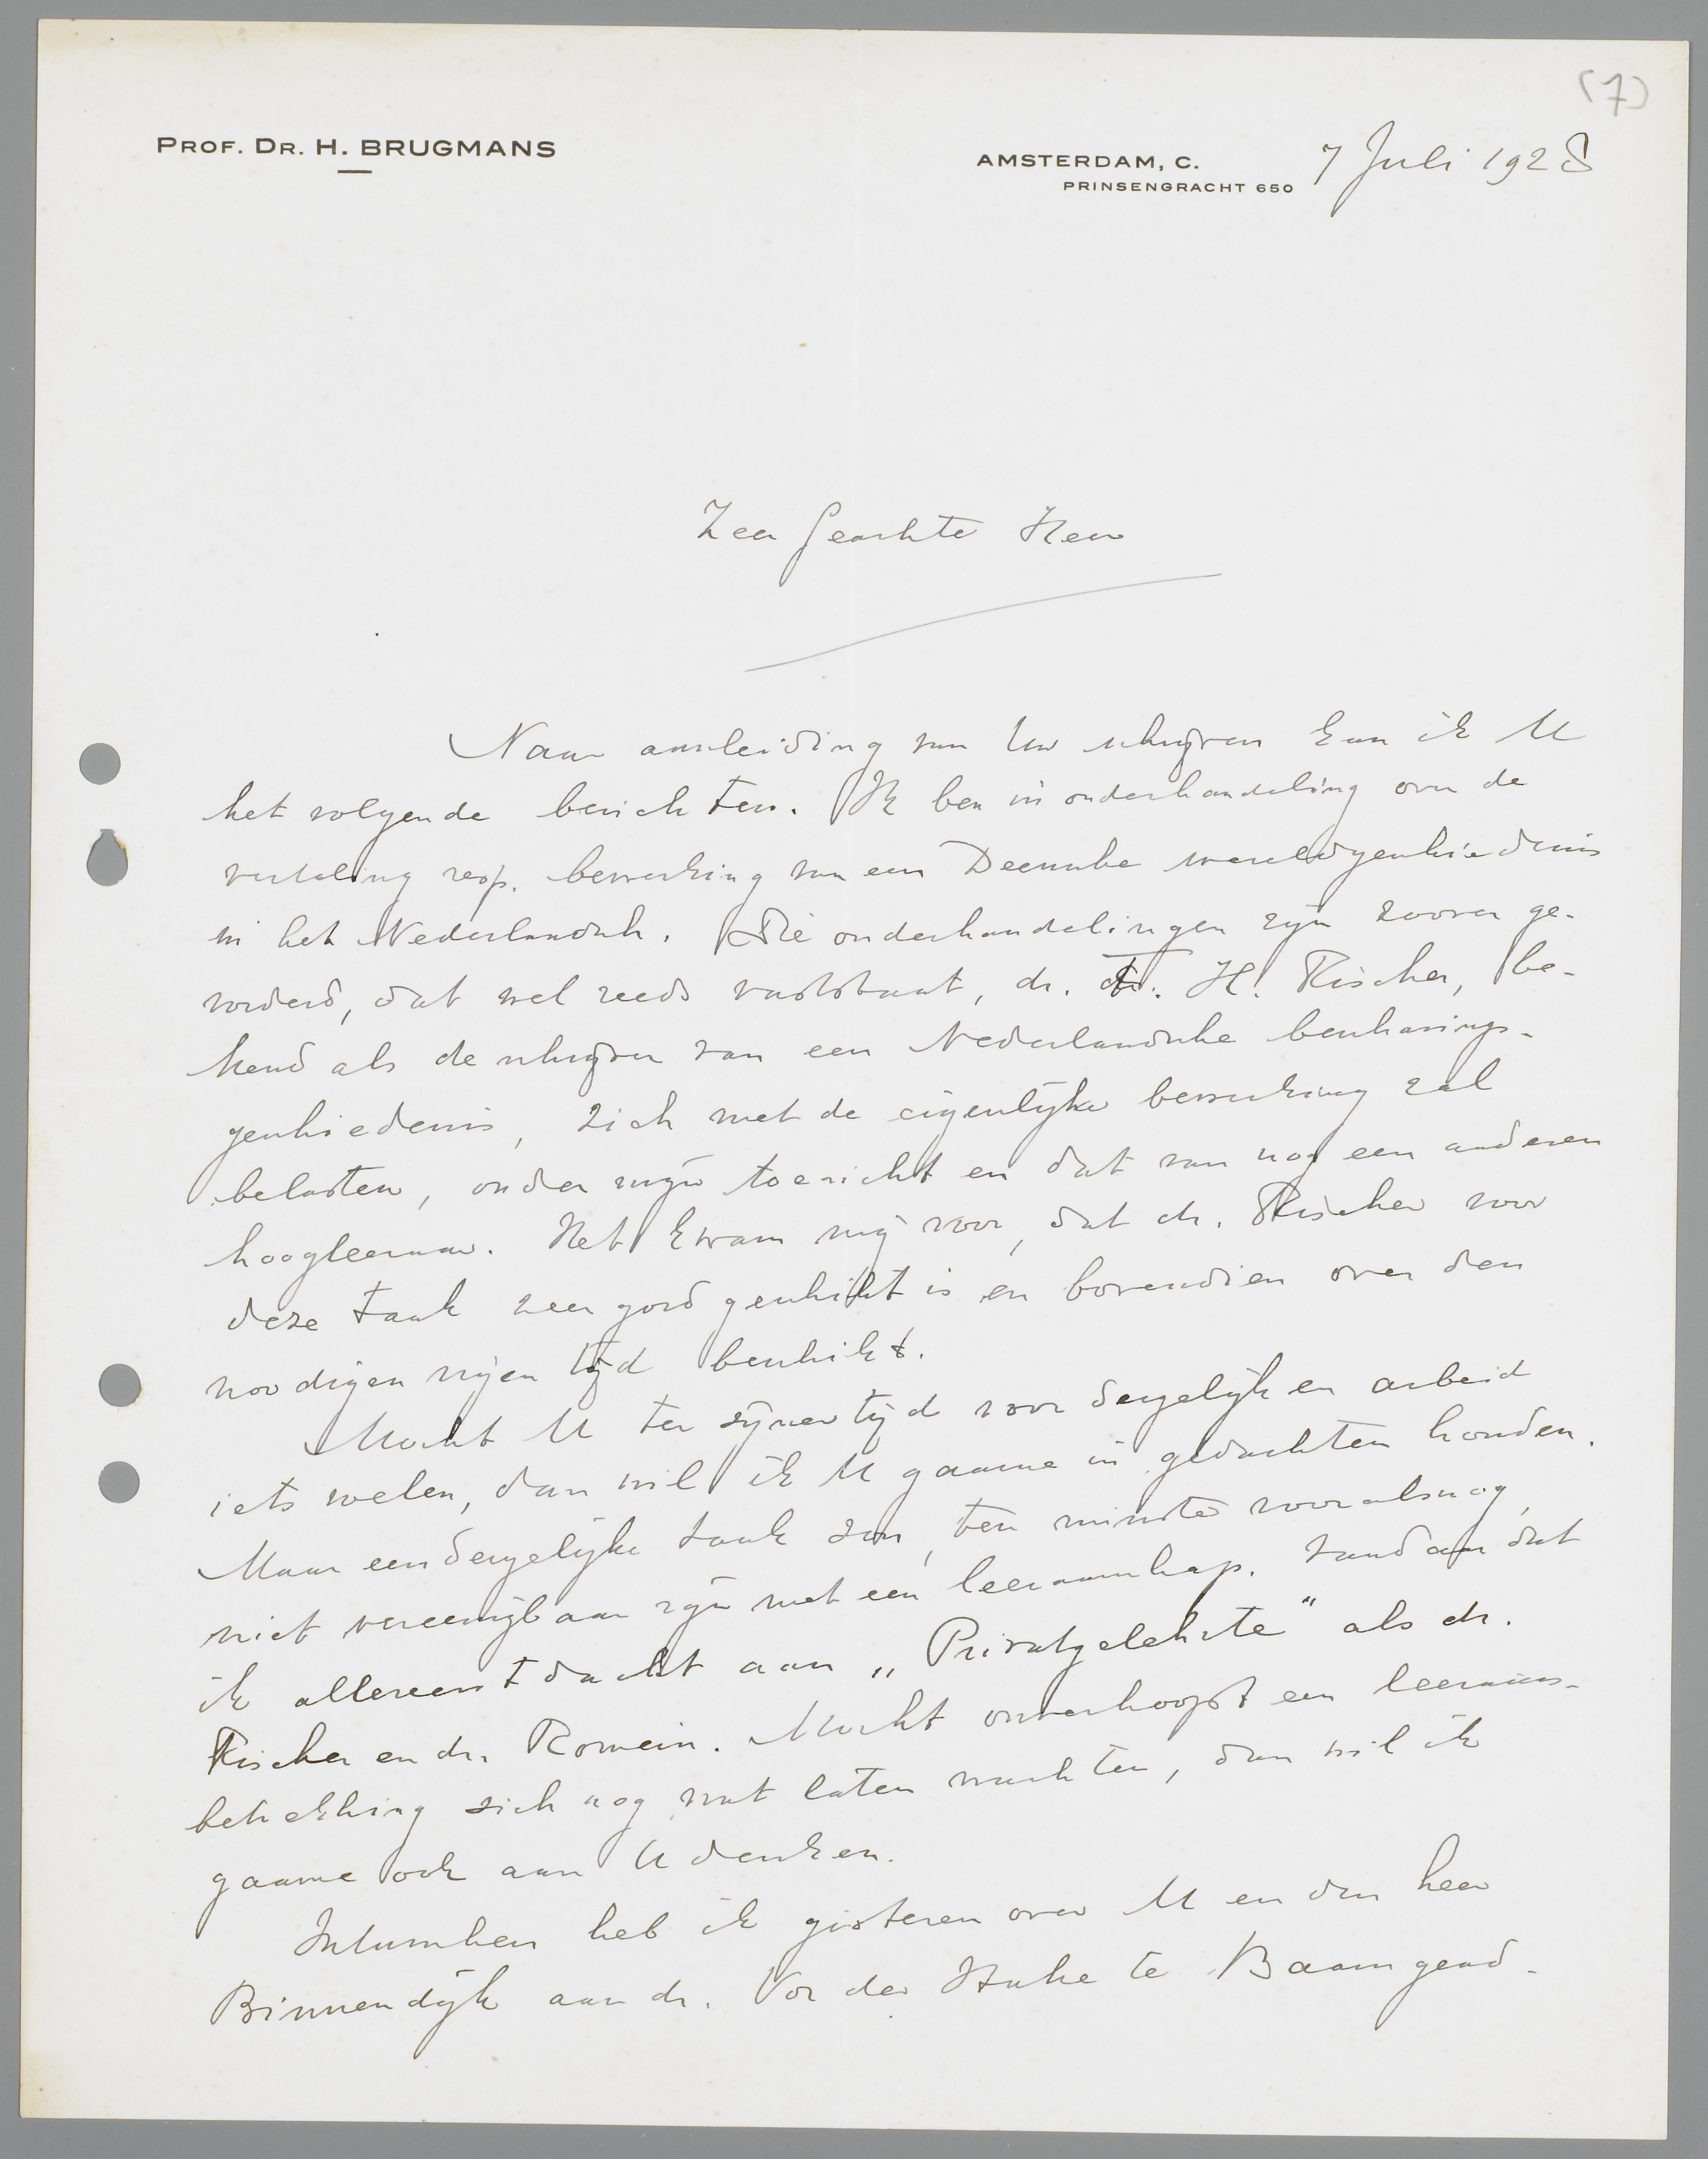 (7)
PROF. DR. H. BRUGMANS
AMSTERDAM, C. 7 Juli 1928
PRINSENGRACHT 650
Zeer Geachte Heer
Naar aanleiding van Uw schrijven kan ik U
het volgende berichten. Ik ben in onderhandeling over de
vertaling resp. bewerking van een Deensche wereldgeschiedenis
in het Nederlandsch. Die onderhandelingen zijn zoover ge-
vorderd, dat wel reeds vaststaat, dr. H. Fischer, be-
kend als de schrijver van een Nederlandsche beschavings-
geschiedenis, zich met de eigenlijke bewerking zal
belasten, onder mijn toezicht en dat van nog een anderen
hoogleeraar. Het kwam mij voor, dat dr. Fischer voor
deze taak zeer goed geschikt is en bovendien over den
noodigen vrijen tijd beschikt.
Mocht U ter zijner tijd voor dergelijken arbeid
iets voelen, dan wil ik U gaarne in gedachten houden.
Maar een dergelijke taak zou, ten minste vooralsnog,
niet vereenigbaar zijn met een leeraarschap, vandaar dat
ik allereerst dacht aan „Privatgelehrte" als dr.
Fischer en dr. Romein. Mocht onverhoopt een leeraars-
betrekking zich nog wat laten wachten, dan wil ik
gaarne ook aan U denken.
Intusschen heb ik gisteren over U en den heer
Binnendijk aan dr. Von der Hake te Baarn gead-